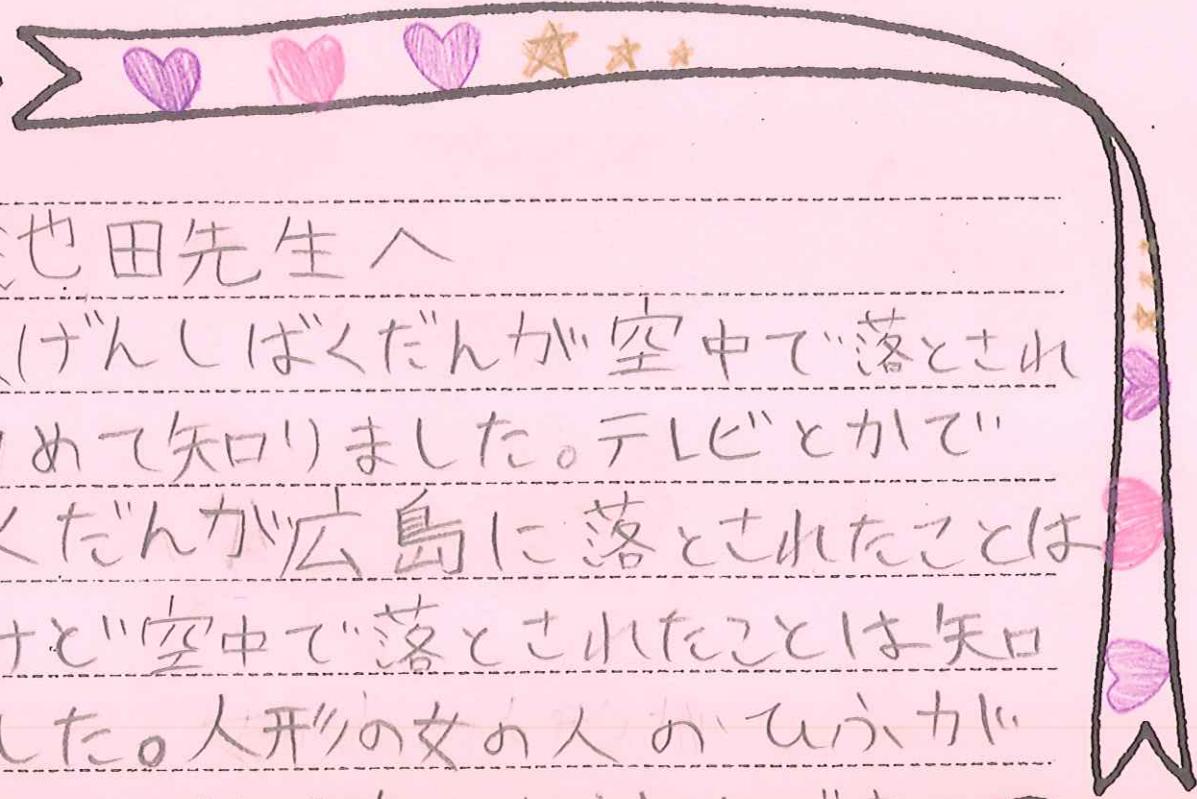 池田先生へ
げんしばくだんが空中で落とされ
めて知りました。テレビとかで
くだんが広島に落とされたことは
けど空中で落とされたことは知
した。人形の女の人のひふが